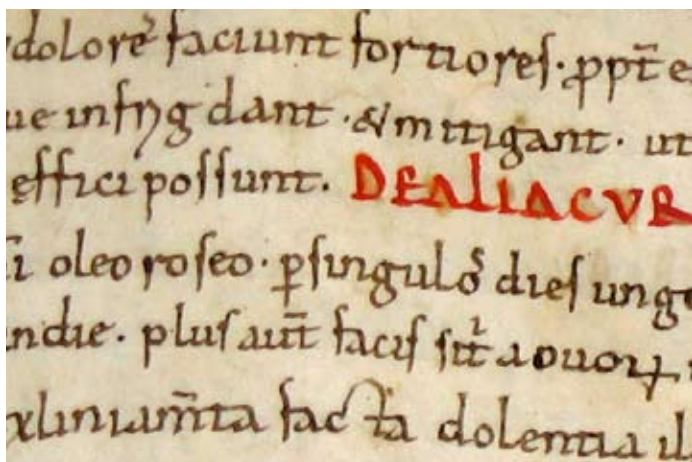 dolorē faciunt fortiores. ꝓpt̄ e
ue infrygdant. & mitigant. ut
effici possunt. DE ALIA CUR
oleo roseo. ꝑ singulos dies ung
ndie. plus aut̄ facis
dolentia